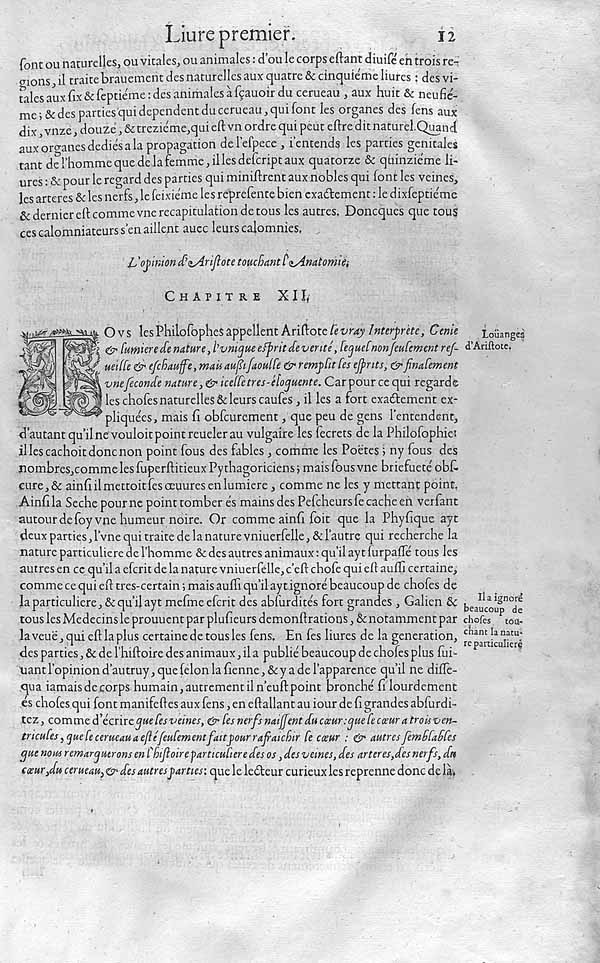 Liure premier. 12
ſont ou naturelles, ou vitales, ou animales : d'ou le corps eſtant diuiſé en trois re-
gions, il traite brauement des naturelles aux quatre & cinquiéme liures : des vi-
tales aux ſix & ſeptiéme : des animales à ſçauoir du cerueau , aux huit & neufié-
me ; & des parties qui dependent du cerueau, qui ſont les organes des ſens aux
dix , vnze , douze , & treziéme, qui eſt vn ordre qui peut eſtre dit naturel. Quand
aux organes dediés a la propagation de l'eſpece , i'entends les parties genitales
tant de l'homme que de la femme, il les deſcript aux quatorze & quinziéme li-
ures : & pour le regard des parties qui miniſtrent aux nobles qui ſont les veines,
les arteres & les nerfs, le ſeixiéme les repreſente bien exactement : le dixſeptiéme
& dernier eſt comme vne recapitulation de tous les autres. Doncques que tous
ces calomniateurs s'en aillent auec leurs calomnies.
L'opinion d'Ariſtote touchant l'Anatomie.
CHAPITRE XII.
TOVS les Philoſophes appellent Ariſtote le vray Interprete, Genie
& lumiere de nature, l'vnique eſprit de verité, lequel non ſeulement reſ-
ueille & eſchauffe, mais auſsi ſaoulle & remplit les eſprits, & finalement
vne ſeconde nature, & icelle tres-éloquente. Car pour ce qui regarde
les choſes naturelles & leurs cauſes , il les a fort exactement ex-
pliquées, mais ſi obſcurement , que peu de gens l'entendent,
d'autant qu'il ne vouloit point reueler au vulgaire les ſecrets de la Philoſophie:
il les cachoit donc non point ſous des fables , comme les Poëtes ; ny ſous des
nombres, comme les ſuperſtitieux Pythagoriciens ; mais ſous vne briefueté obſ-
cure, & ainſi il mettoit ſes œuures en lumiere , comme ne les y mettant point.
Ainſi la Seche pour ne point tomber és mains des Peſcheurs ſe cache en verſant
autour de ſoy vne humeur noire. Or comme ainſi ſoit que la Phyſique ayt
deux parties, l'vne qui traite de la nature vniuerſelle, & l'autre qui recherche la
nature particuliere de l'homme & des autres animaux : qu'il ayt ſurpaſſé tous les
autres en ce qu'il a eſcrit de la nature vniuerſelle, c'eſt choſe qui eſt auſſi certaine,
comme ce qui eſt tres-certain ; mais auſſi qu'il ayt ignoré beaucoup de choſes de
la particuliere, & qu'il ayt meſme eſcrit des abſurdités fort grandes , Galien &
tous les Medecins le prouuent par pluſieurs demonſtrations, & notamment par
la veuë, qui eſt la plus certaine de tous les ſens. En ſes liures de la generation,
des parties, & de l'hiſtoire des animaux, il a publié beaucoup de choſes plus ſui-
uant l'opinion d'autruy, que ſelon la ſienne, & y a de l'apparence qu'il ne diſſe-
qua iamais de corps humain, autrement il n'euſt point bronché ſi lourdement
és choſes qui ſont manifeſtes aux ſens, en eſtallant au iour de ſi grandes abſurdi-
tez, comme d'écrire que les veines, & les nerfs naiſſent du cœur : que le cœur a trois ven-
tricules, que le cerueau a eſté ſeulement fait pour rafraichir le cœur : & autres ſemblables
que nous remarquerons en l'hiſtoire particuliere des os, des veines, des arteres, des nerfs, du
cœur, du cerueau, & des autres parties : que le lecteur curieux les reprenne donc de là.
Loüanges
d'Ariſtote.
Il a ignoré
beaucoup de
choſes tou-
chant la natu-
re particuliere